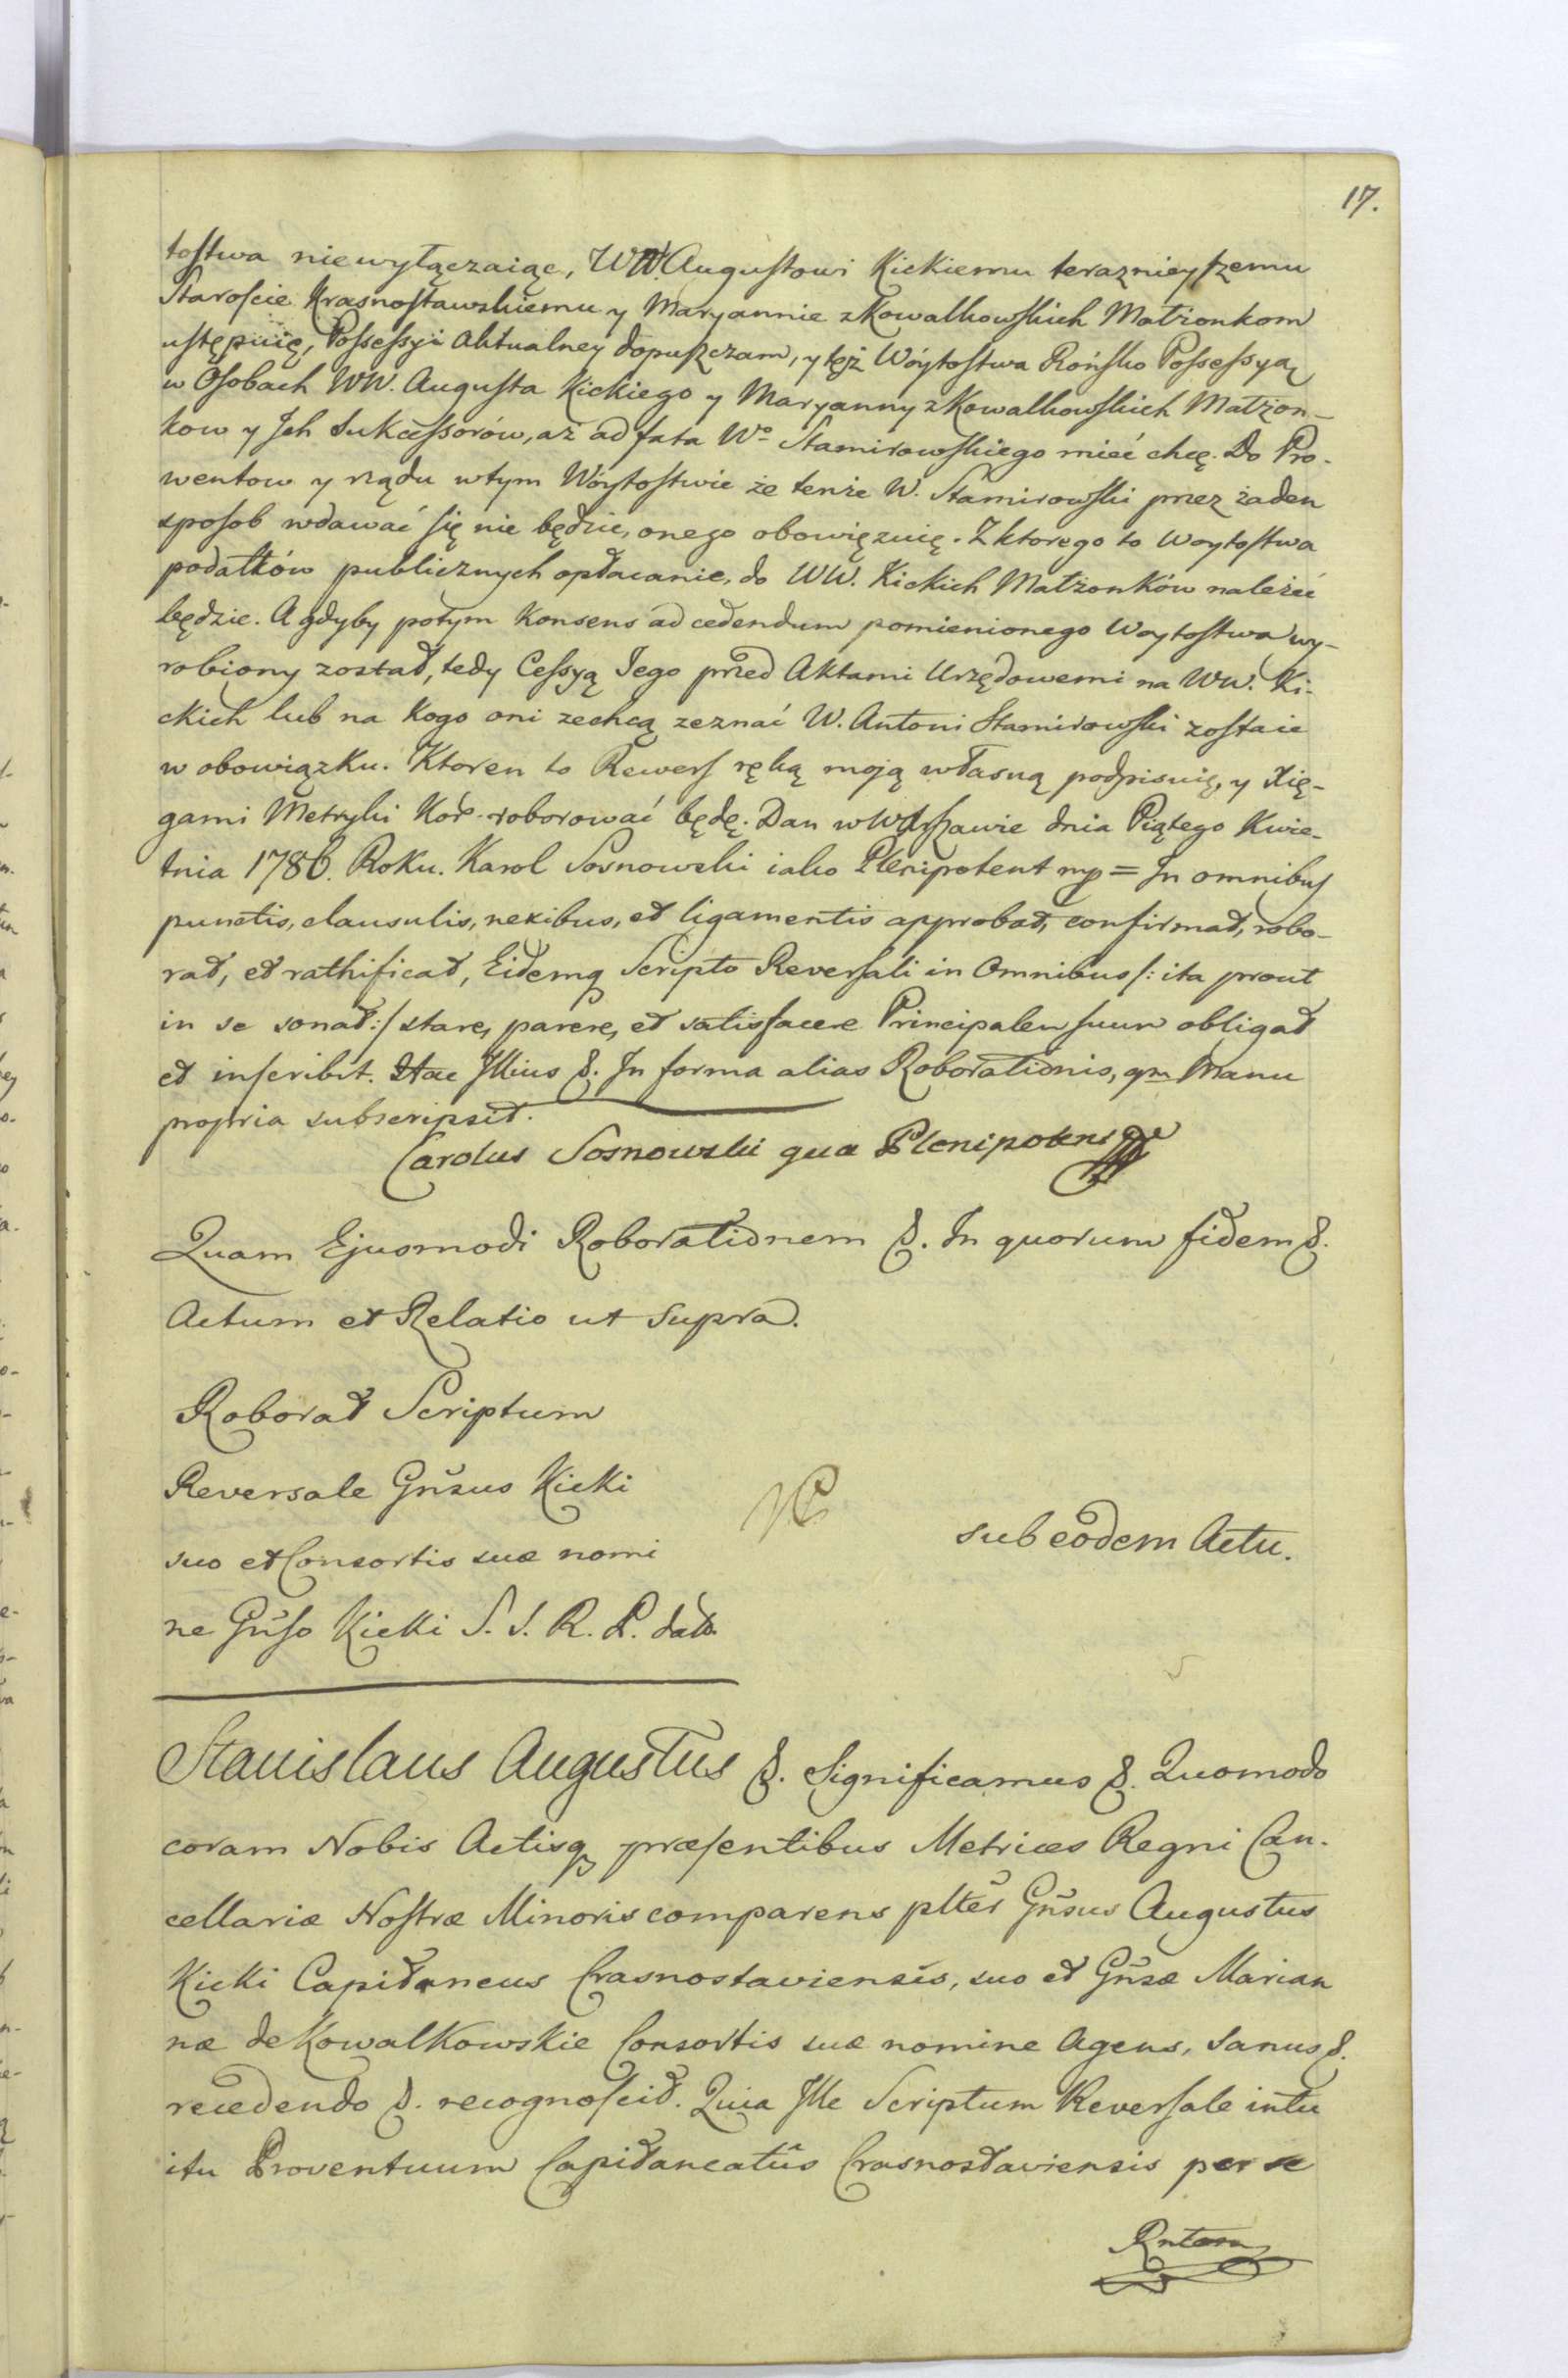 17.
tostwa niewyłączaiąc, WW. Augustowi Kickiemu teraznieyszemu
Staroscie Krasnostawskiemu y Maryannie z Kowalkowskich Małżonkom
ustępuię, Possessyi Aktualney dopuszczam, y tęż Wóytostwa Rońsko Possessyą
w Osobach WW. Augusta Kickiego y Maryanny z Kowalkowskich Małżon-
kow y Jch Sukcessorów, aż ad fata Wo Stamirowskiego mieć chcę. Do Pro-
wentow y rządu w tym Wóytostwie że tenże W. Stamirowski przez żaden
sposob wdawać się nie będzie, onego obowięzuię. Z ktorego to Woytostwa
podatków publicznych opłacanie, do WW. Kickich Małżonków należeć
będzie. A gdyby potym Konsens ad cedendum pomienionego Woytostwa wy-
robiony został, tedy Cessyą Jego przed Aktami Urzędowemi na WW. Ki-
ckich lub na Kogo oni zechcą zeznać W. Antoni Stamirowski zostaie
w obowiązku. Ktoren to Rewers ręką moją własną podpisuię, y Xię-
gami Metryki Kor. roborować będę. Dan w Warszawie dnia Piątego Kwie-
tnia 1786. Roku. Karol Sosnowski iako Plenipotent mp = Jn omnibus
punctis, clausulis, nexibus, et ligamentis approbat, confirmat, robo-
rat, et rathificat, Eidemq Scripto Reversali in Omnibus /: ita prout
in se sonat :/ stare, parere, et satisfacere Principalem suum obligat
et inscribit. Hac Jllius &. Jn forma alias Roborationis, qm Manu
propria subscripsit.
Carolus Sosnowski qua Plenipotens mp
Quam Ejusmodi Roborationem &. Jn quorum fidem &.
Actum et Relatio ut Supra.
Roborat Scriptum
Reversale Gñsus Kicki
suo et Consortis suæ nomi
ne Gñso Kicki S. S. R. P. dat.
sub eodem Actu.
Stanislaus Augustus &. Significamus &. Quomodo
coram Nobis Actisq præsentibus Metrices Regni Can-
cellariæ Nostræ Minoris comparens plter Gñsus Augustus
Kicki Capitaneus Crasnostaviensis, suo et Gñsæ Marian
næ de Kowalkowskie Consortis suæ nomine Agens, Sanus &.
recedendo &. recognoscit. Quia Jlle Scriptum Reversale intu
itu Proventuum Capitaneatûs Crasnostaviensis per se